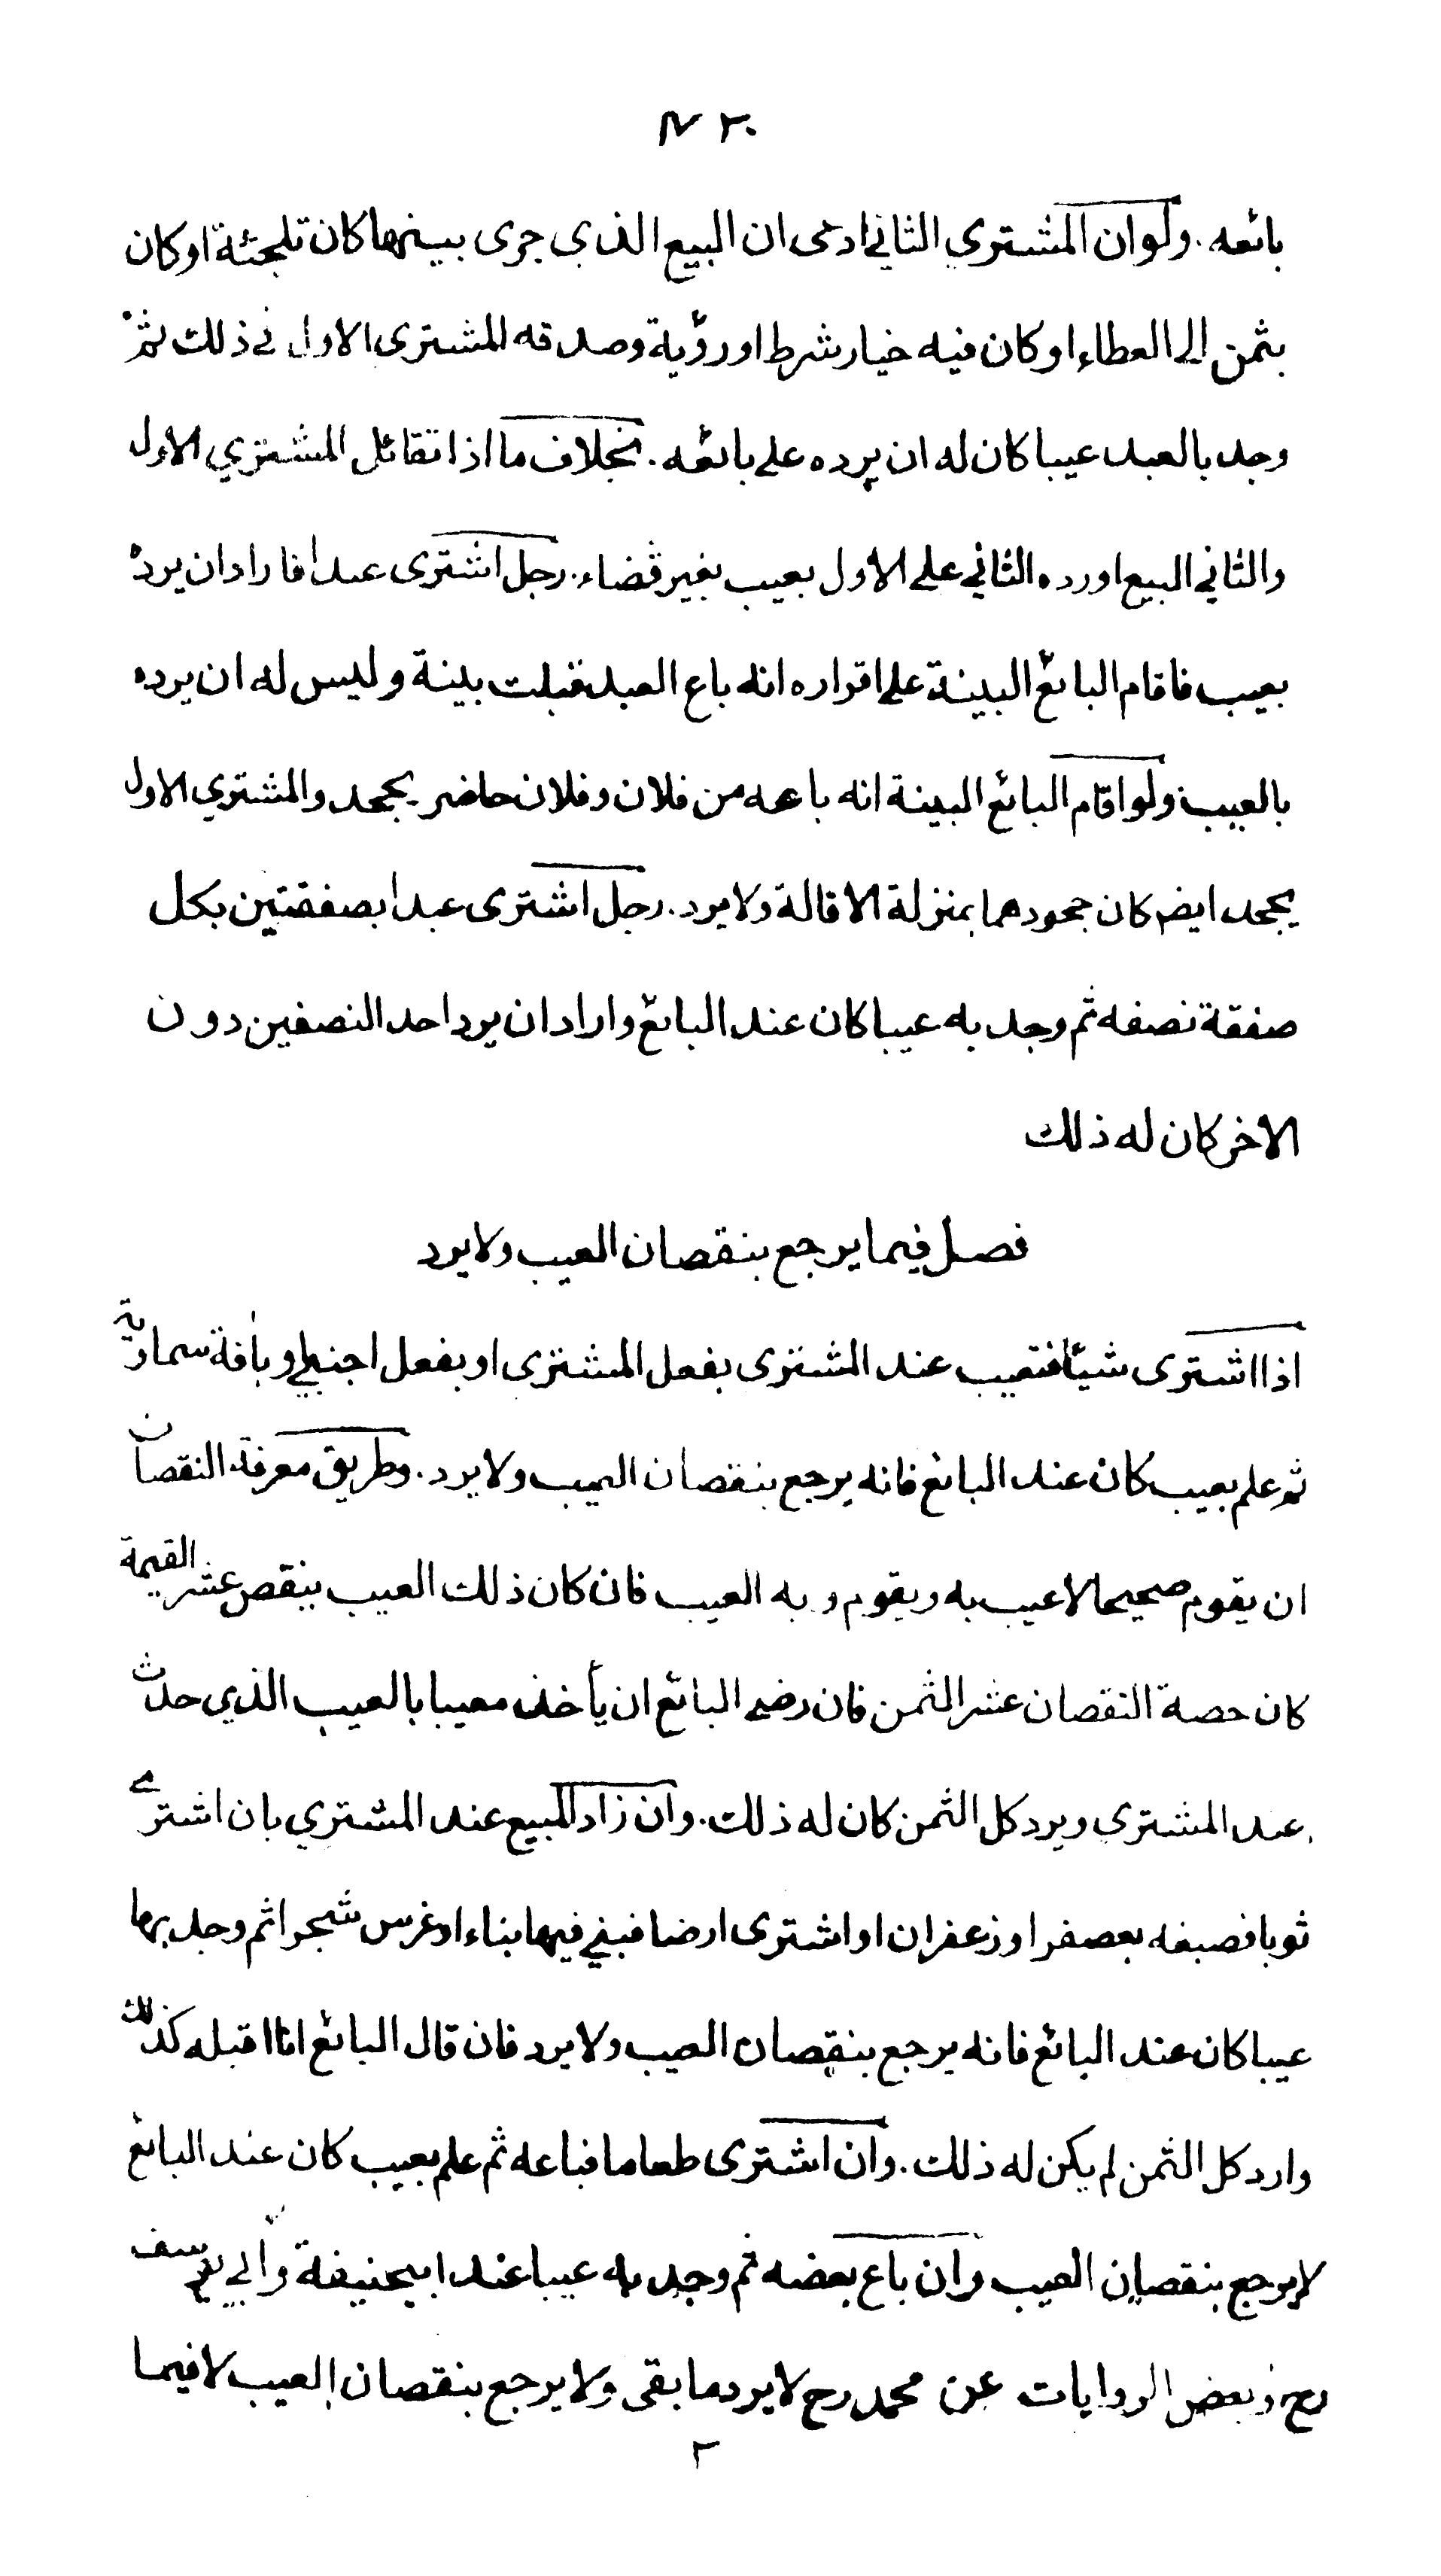 بائعه . ولو ان المشتري الثاني ادعى ان البيع الذي جرى بينهما كان تلجئة او كان
بثمن الى العطاء او كان فيه خيار شرط او رؤية وصدقه المشترى الاول في ذلك ثم
وجد بالعبد عيبا كان له ان يرده على بائعه . بخلاف ما اذا تقائل المشتري الاول
والثاني البيع او رده الثاني على الاول بعيب بغير قضاء . رجل اشترى عبدا فاراد ان يرده
بعيب فاقام البائع البينة على اقراره انه باع العبد قبلت بينة وليس له ان يرده
بالعيب ولو اقام البائع البينة انه باعه من فلان وفلان حاضر يجحد والمشتري الاول
يجحد ايضم كان جحودهما بمنزلة الاقالة ولا يرد . رجل اشترى عبدا بصفقتين بكل
صفقة نصفه ثم وجد به عيبا كان عند البائع واراد ان يرد احد النصفين دون
الاخر كان له ذلك
فصل فيما يرجع بنقصان العيب ولا يرد
اذا اشترى شيئا فتعيب عند المشترى بفعل المشترى او بفعل اجنبي او بآفة سماوية
ثم علم بعيب كان عند البائع فانه يرجع بنقصان العيب ولا يرد . وطريق معرفة النقصان
ان يقوم صحيحا لا عيب به ويقوم وبه العيب فان كان ذلك العيب ينقص عشر القيمة
كان حصة النقصان عشر الثمن فان رضي البائع ان يأخذه معيبا بالعيب الذي حدث
عند المشترى ويرد كل الثمن كان له ذلك . وان زاد المبيع عند المشتري بان اشترى
ثوبا فصبغه بعصفر او زعفران او اشترى ارضا فبنى فيها بناء او غرس شجرا ثم وجد بها
عيبا كان عند البائع فانه يرجع بنقصان العيب ولا يرد فان قال البائع انا اقبله كذلك
وارد كل الثمن لم يكن له ذلك . وان اشترى طعاما فباعه ثم علم بعيب كان عند البائع
لا يرجع بنقصان العيب وان باع بعضه ثم وجد به عيبا عند ابيحنيفة وابي يوسف
رح وبعض الروايات عن محمد رح لا يرد ما بقى ولا يرجع بنقصان العيب لا فيما
٢